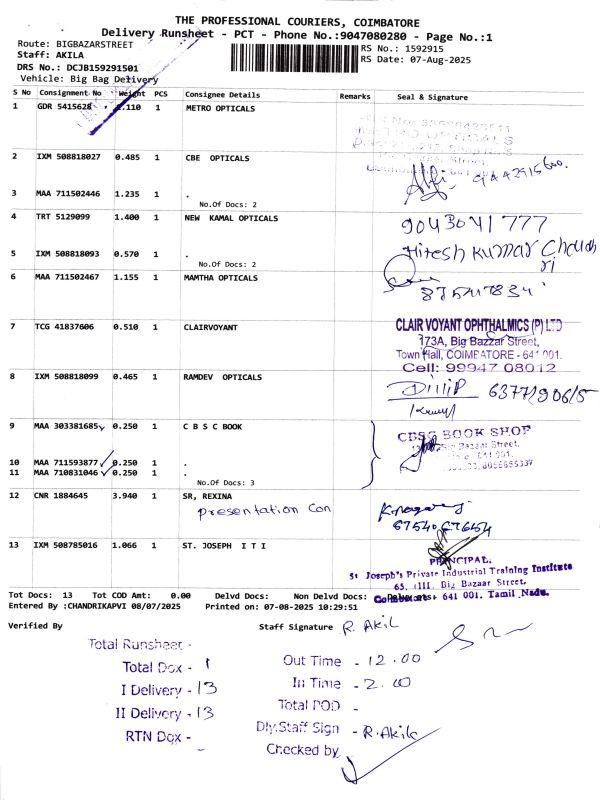 THE PROFESSIONAL COURIERS, COIMBATORE
Delivery Runsheet - PCT - Phone No.:9047080280 - Page No.:1
Route: BIGBAZARSTREET
RS No.: 1592915
Staff: AKILA
RS Date: 07-Aug-2025
DRS No.: DCJB159291501
Vehicle: Big Bag Delivery
S No Consignment No Weight PCS Consignee Details Remarks Seal & Signature
1 GDR 5415628 .110 1 METRO OPTICALS
2 IXM 508818027 0.485 1 CBE OPTICALS
3 MAA 711502446 1.235 1 .
No.Of Docs: 2
4 TRT 5129099 1.400 1 NEW KAMAL OPTICALS
9043041777
Hitesh Kumar Choudhri
5 IXM 508818093 0.570 1 .
No.Of Docs: 2
6 MAA 711502467 1.155 1 MAMTHA OPTICALS
7 TCG 41837606 0.510 1 CLAIRVOYANT
CLAIR VOYANT OPHTHALMICS (P) LTD
173A, Big Bazzar Street,
Town Hall, COIMBATORE - 641 001.
Cell: 99947 08012
8 IXM 508818099 0.465 1 RAMDEV OPTICALS
Dillip
9 MAA 303381685 0.250 1 C B S C BOOK
CBSC BOOK SHOP
Big Bazaar Street,
10 MAA 711593877 0.250 1 .
11 MAA 710831046 0.250 1 .
No.Of Docs: 3
12 CNR 1884645 3.940 1 SR, REXINA
presentation Con
13 IXM 508785016 1.066 1 ST. JOSEPH I T I
PRINCIPAL,
St Joseph's Private Industrial Training Institute
65, Big Bazaar Street,
Coimbatore 641 001. Tamil Nadu.
Tot Docs: 13 Tot COD Amt: 0.00 Delvd Docs: Non Delvd Docs:
Entered By :CHANDRIKAPVI 08/07/2025 Printed on: 07-08-2025 10:29:51
Verified By
Staff Signature R. Akil
Total Runsheet -
Total Dox - 1
I Delivery - 13
II Delivery - 13
RTN Dox -
Out Time - 12.00
In Time - 2.00
Total POD -
Dly.Staff Sign - R.Akila
Checked by